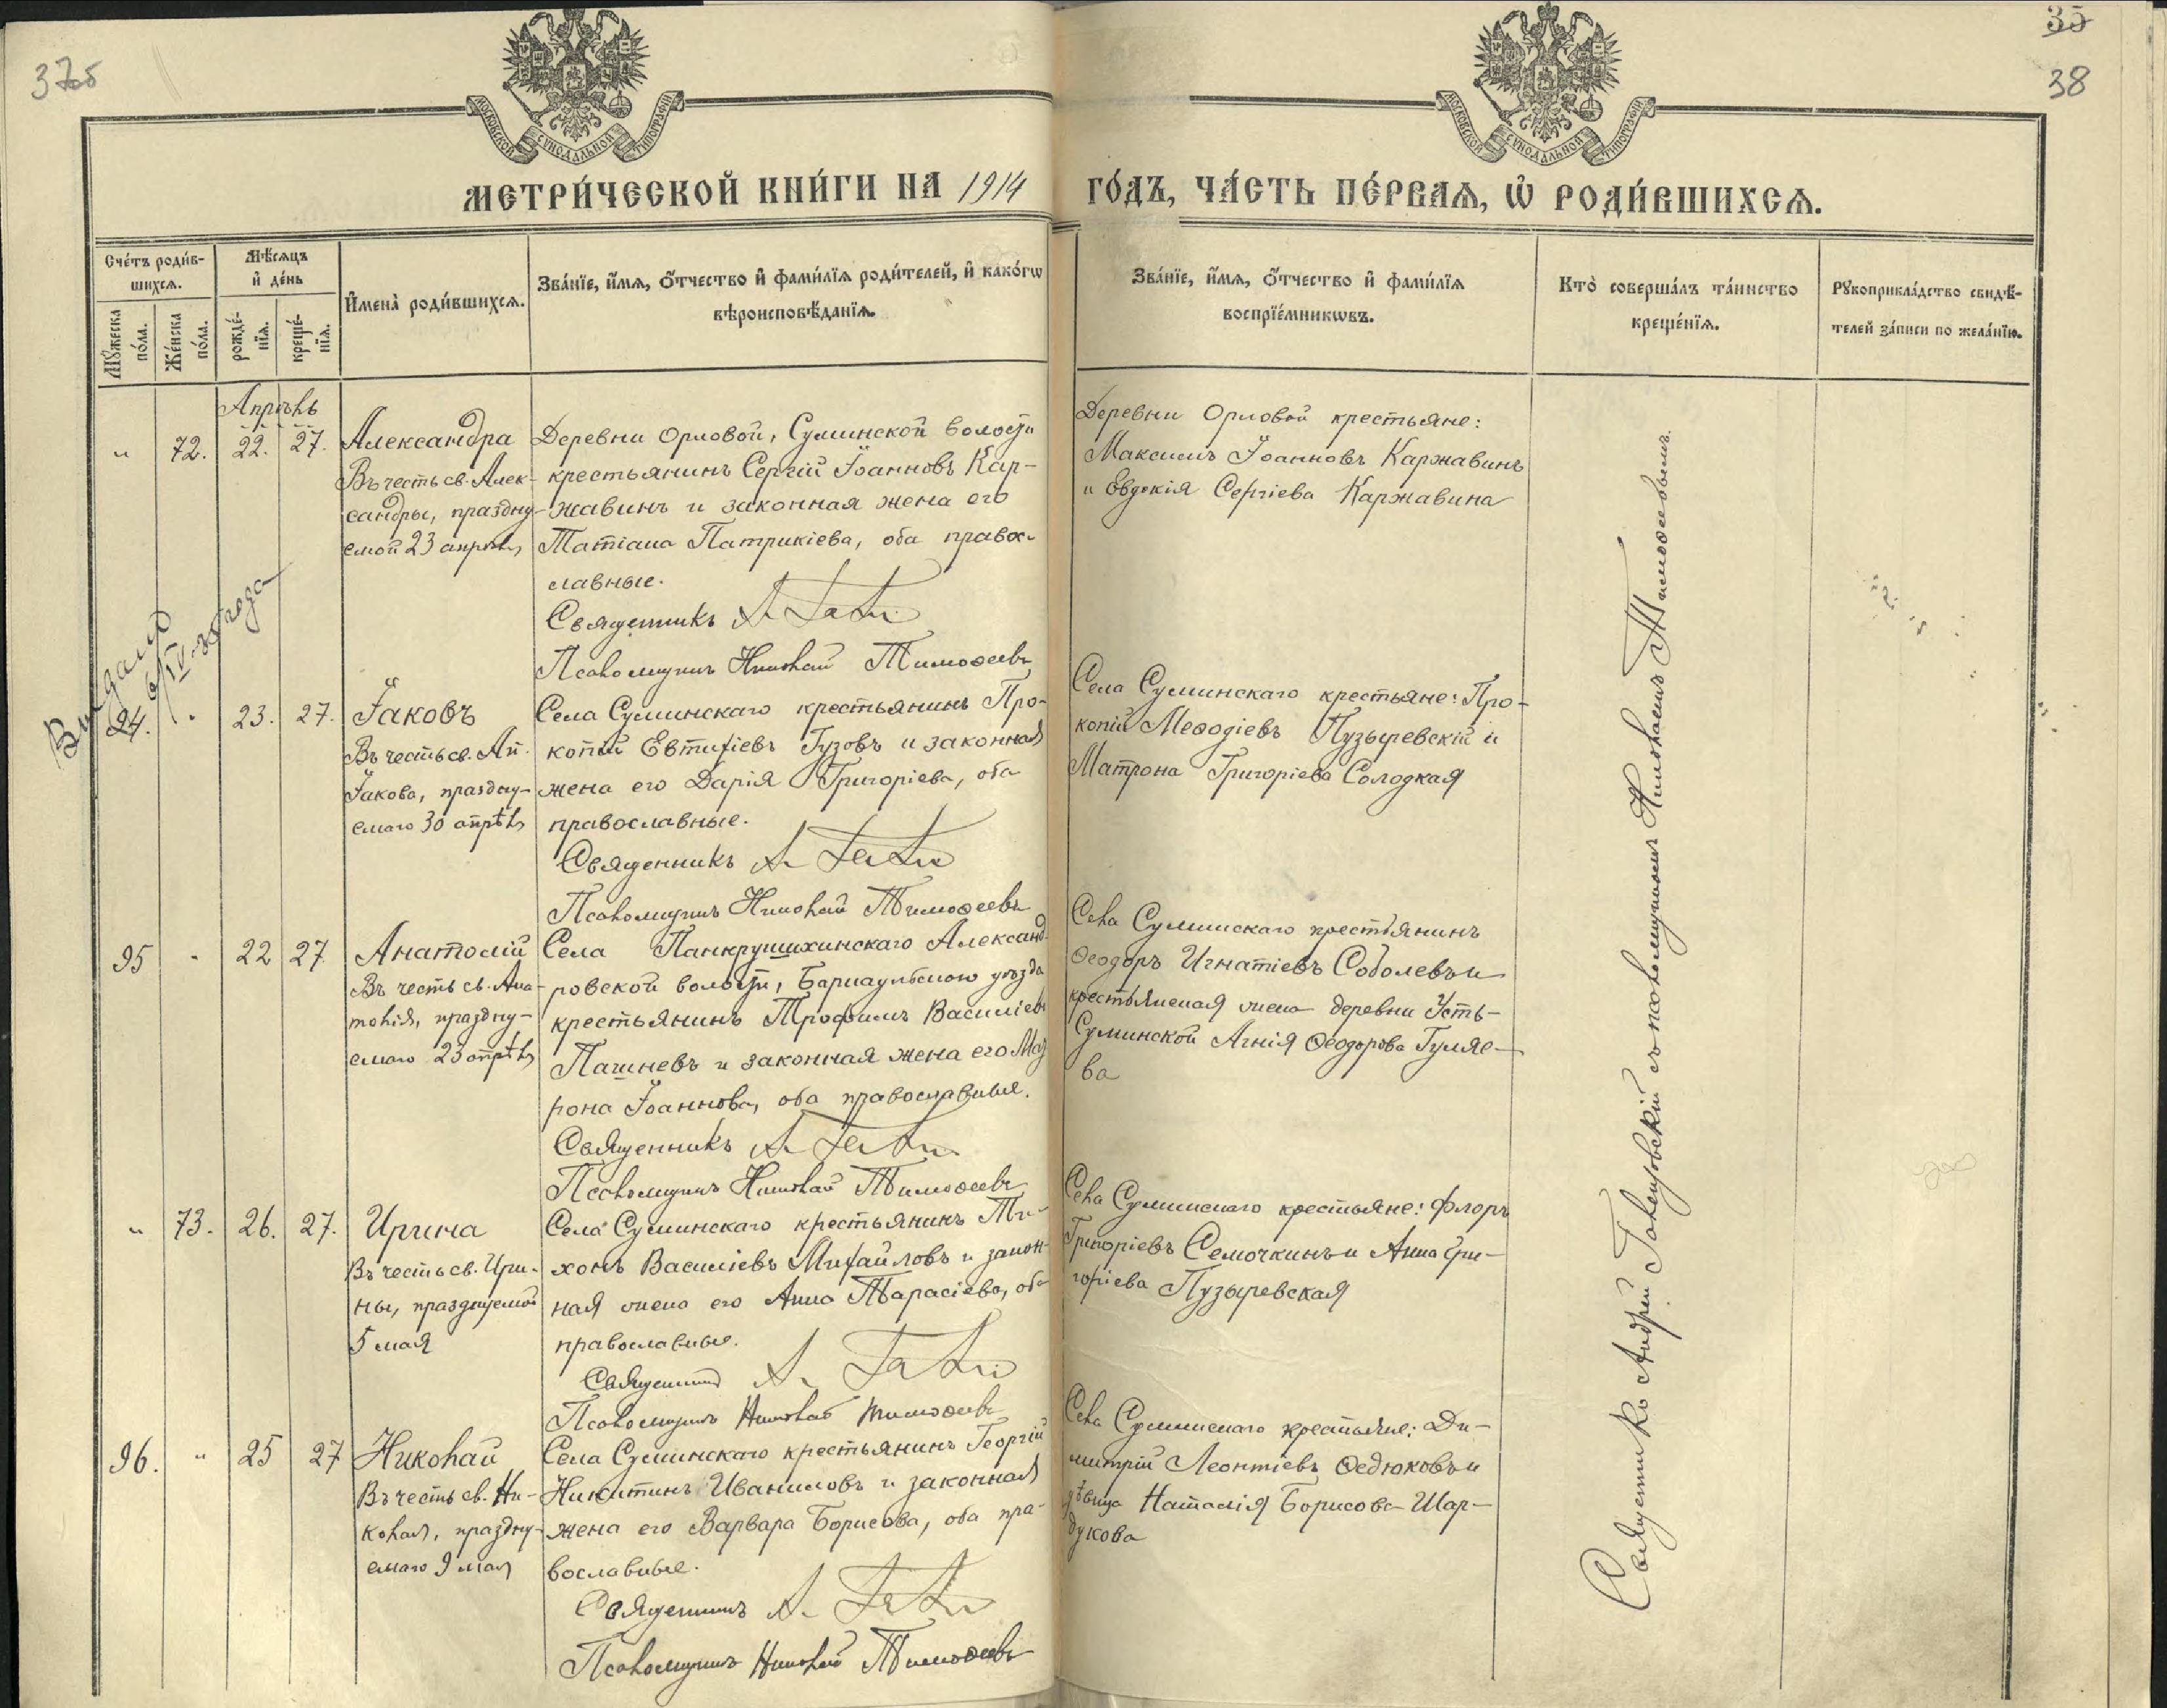 37об
35
38
МОСКОВСКОЙ СѴНОДАЛЬНОЙ ТИПОГРАФІИ
МОСКОВСКОЙ СѴНОДАЛЬНОЙ ТИПОГРАФІИ
МЕТРИ́ЧЕСКОЙ КНИ́ГИ НА 1914 ГО́ДЪ, ЧА́СТЬ ПЕ́РВАѦ, Ѡ҆ РОДИ́ВШИХСѦ.
Сче́тъ роди́в-
шихсѧ.
Мꙋ́жеска по́ла.
Же́нска по́ла.
Мѣ́сѧцъ
и҆ де́нь
рожде́-
нїѧ.
креще́-
нїѧ.
И҆мена̀ роди́вшихсѧ.
Зва́нїе, и҆́мѧ, ѻ҆́тчество и҆ фамѝлїѧ роди́телей, и҆ како́гѡ
вѣроисповѣ́данїѧ.
Зва́нїе, и҆́мѧ, ѻ҆́тчество и҆ фамѝлїѧ
воспрїе́мникѡвъ.
Кто̀ соверша́лъ та́инство
креще́нїѧ.
Рꙋкоприкла́дство свидѣ́-
телей за́писи по жела́нїю.
Апрѣль
" 72. 22. 27. Александра
Въ честь св. Алек-
сандры, праздну-
емой 23 апрѣля
Деревни Орловой, Сузинской волости
крестьянинъ Сергій Іоанновъ Кар-
жавинъ и законная жена его
Татіана Патрикіева, оба правос-
лавные.
Священникъ
Псаломщикъ Николай Тимоѳеевъ
Деревни Орловой крестьяне:
Максимъ Іоанновъ Каржавинъ
и Евдокія Сергіева Каржавина
Выдано
6/IV-26 года
94. " 23. 27. Іаковъ
Въ честь св. Ап.
Іакова, праздну-
емаго 30 апрѣля
Села Суминскаго крестьянинъ Про-
копій Евтихіевъ Гузовъ и законная
жена его Дарія Григоріева, оба
православные.
Священникъ
Псаломщикъ Николай Тимоѳеевъ
Села Суминскаго крестьяне: Про-
копій Меѳодіевъ Пузыревскій и
Матрона Григоріева Солодкая
95 " 22 27 Анатолій
Въ честь св. Ана-
толія, праздну-
емаго 23 апрѣля
Села Панкрушихинскаго Александ-
ровской волости, Барнаульскаго уѣзда
крестьянинъ Трофимъ Василіевъ
Пашневъ и законная жена его Мат
рона Іоаннова, оба православные.
Священникъ
Псаломщикъ Николай Тимоѳеевъ
Села Суминскаго крестьянинъ
Ѳеодоръ Игнатіевъ Соболевъ и
крестьянская жена деревни Усть-
Суминской Агнія Ѳеодорова Гуляе-
ва
" 73. 26. 27. Ирина
Въ честь св. Ири-
ны, празднуемой
5 мая
Села Суминскаго крестьянинъ Ти-
хонъ Василіевъ Михайловъ и закон-
ная жена его Анна Тарасіева, оба
православные.
Священникъ
Псаломщикъ Николай Тимоѳеевъ
Села Суминскаго крестьяне: Флоръ
Григоріевъ Семочкинъ и Анна Гри-
горіева Пузыревская
96. " 25 27 Николай
Въ честь св. Ни-
колая, праздну-
емаго 9 мая
Села Суминскаго крестьянинъ Георгій
Никитинъ Иванимовъ и законная
жена его Варвара Борисова, оба пра-
вославные.
Священникъ
Псаломщикъ Николай Тимоѳеевъ
Села Суминскаго крестьяне: Ди-
митрій Леонтіевъ Ѳедюковъ и
дѣвица Наталія Борисова Шар-
дукова
Священникъ Андрей съ псаломщикомъ Николаемъ Тимоѳеевымъ.